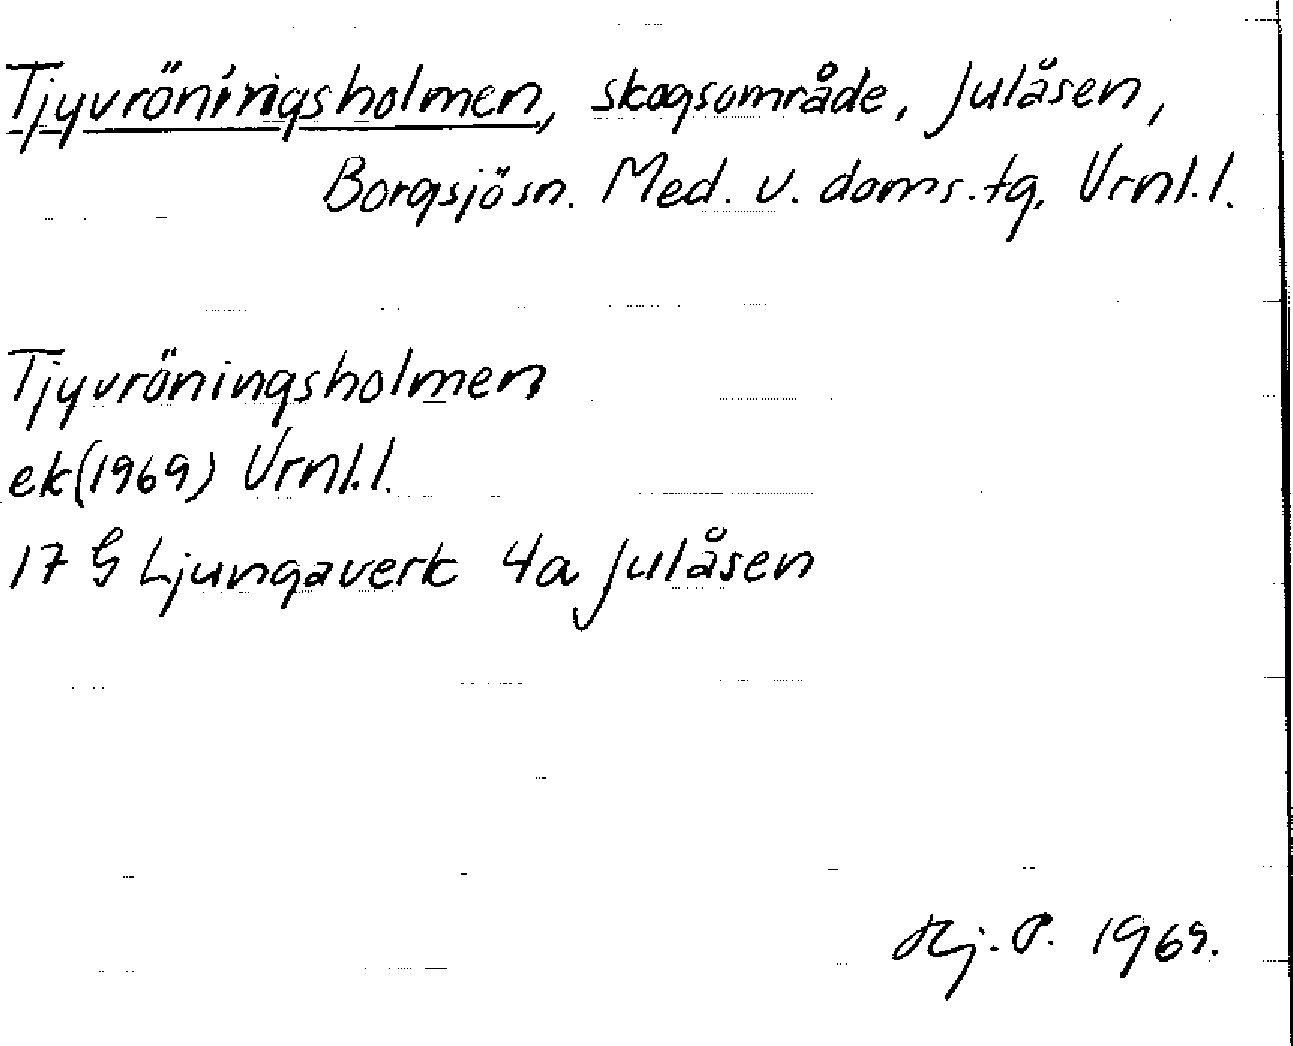 Tjyvröningsholmen, skogsområde, Julåsen,
Borgsjö sn. Med. v. doms. tg, Vrnl. l.
Tjyvröningsholmen
ek (1969) Vrnl. l.
17 G Ljungaverk 4a Julåsen
Hj. P. 1969.